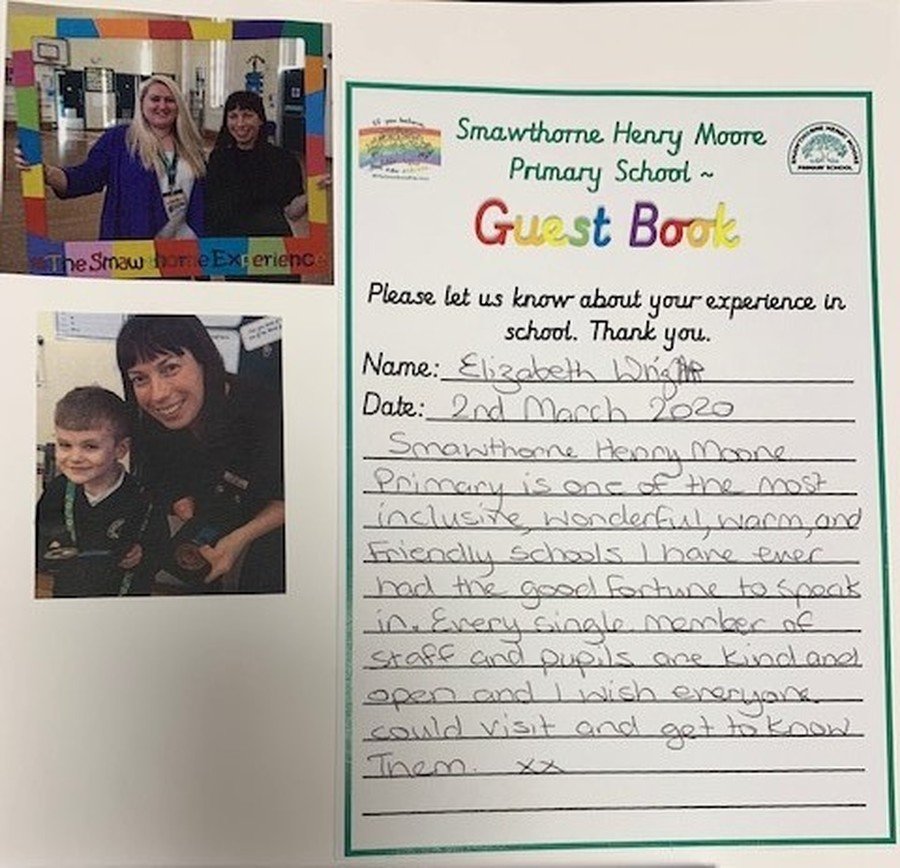 The Smawthorne Experience
If you believe,
Smawthorne Henry Moore
Primary School ~
SMAWTHORNE HENRY MOORE
PRIMARY SCHOOL
Guest Book
Please let us know about your experience in
school. Thank you.
Name: Elizabeth Wright
Date: 2nd March 2020
Smawthorne Henry Moore
Primary is one of the most
inclusive, wonderful, warm, and
Friendly schools I have ever
had the good fortune to speak
in. Every single member of
staff and pupils are kind and
open and I wish everyone
could visit and get to know
Them. xx